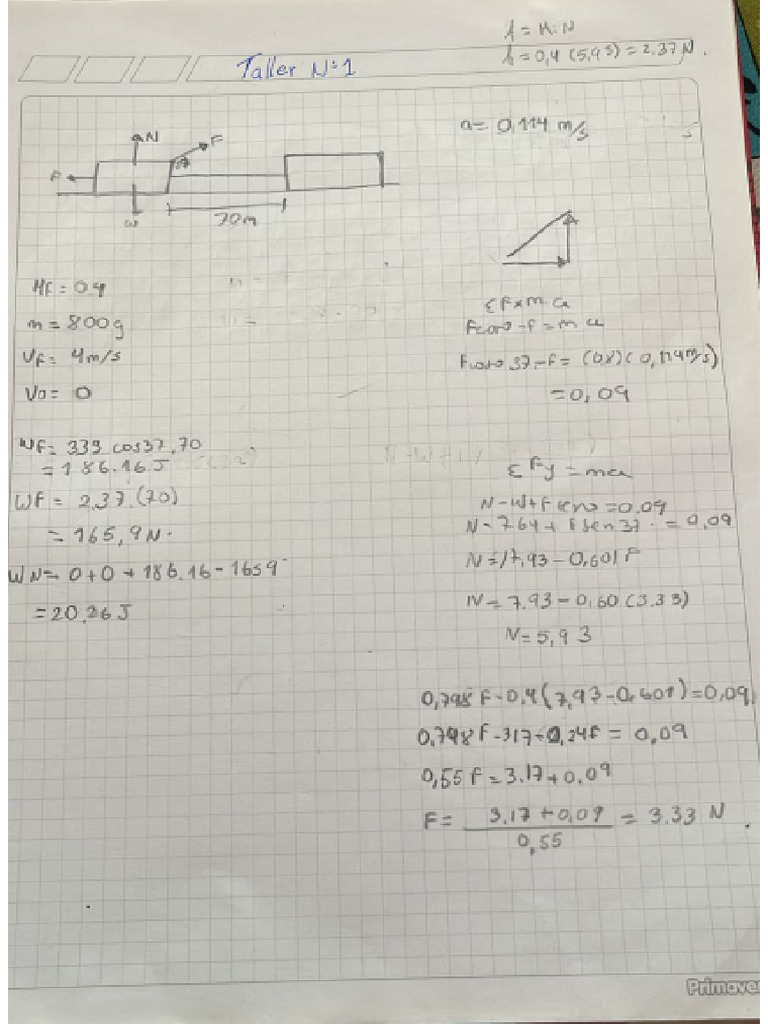 f = M.N
f = 0,4 (5,93) = 2.37 N.
Taller N°1
a = 0,114 m/s
N
F
37
F
w
70m
Mf = 0.4
m = 800g
Vf = 4m/s
Vo = 0
ΣFx m.a
Fcoso -f = m a
Fcoso 37.-f = (0.8)(0,114m/s)
= 0,09
Wf = 333 cos37.70
= 186.16 J
WF = 2,37.(70)
= 165,9 N.
WN = 0+0+186.16-1659
= 20.26 J
ΣFy = ma
N-W+Fseno = 0.09
N-7.64 + F sen 37. = 0,09
N = 7,93 - 0,601 F
N = 7.93 - 0,60 (3.33)
N = 5,93
0,798 F - 0.4 (7,93 - 0,601) = 0,09
0,798 F - 317 - 0,24F = 0,09
0,55 F = 3.17 + 0,09
F = 3,17 + 0,09 = 3.33 N.
0,55
Primaver